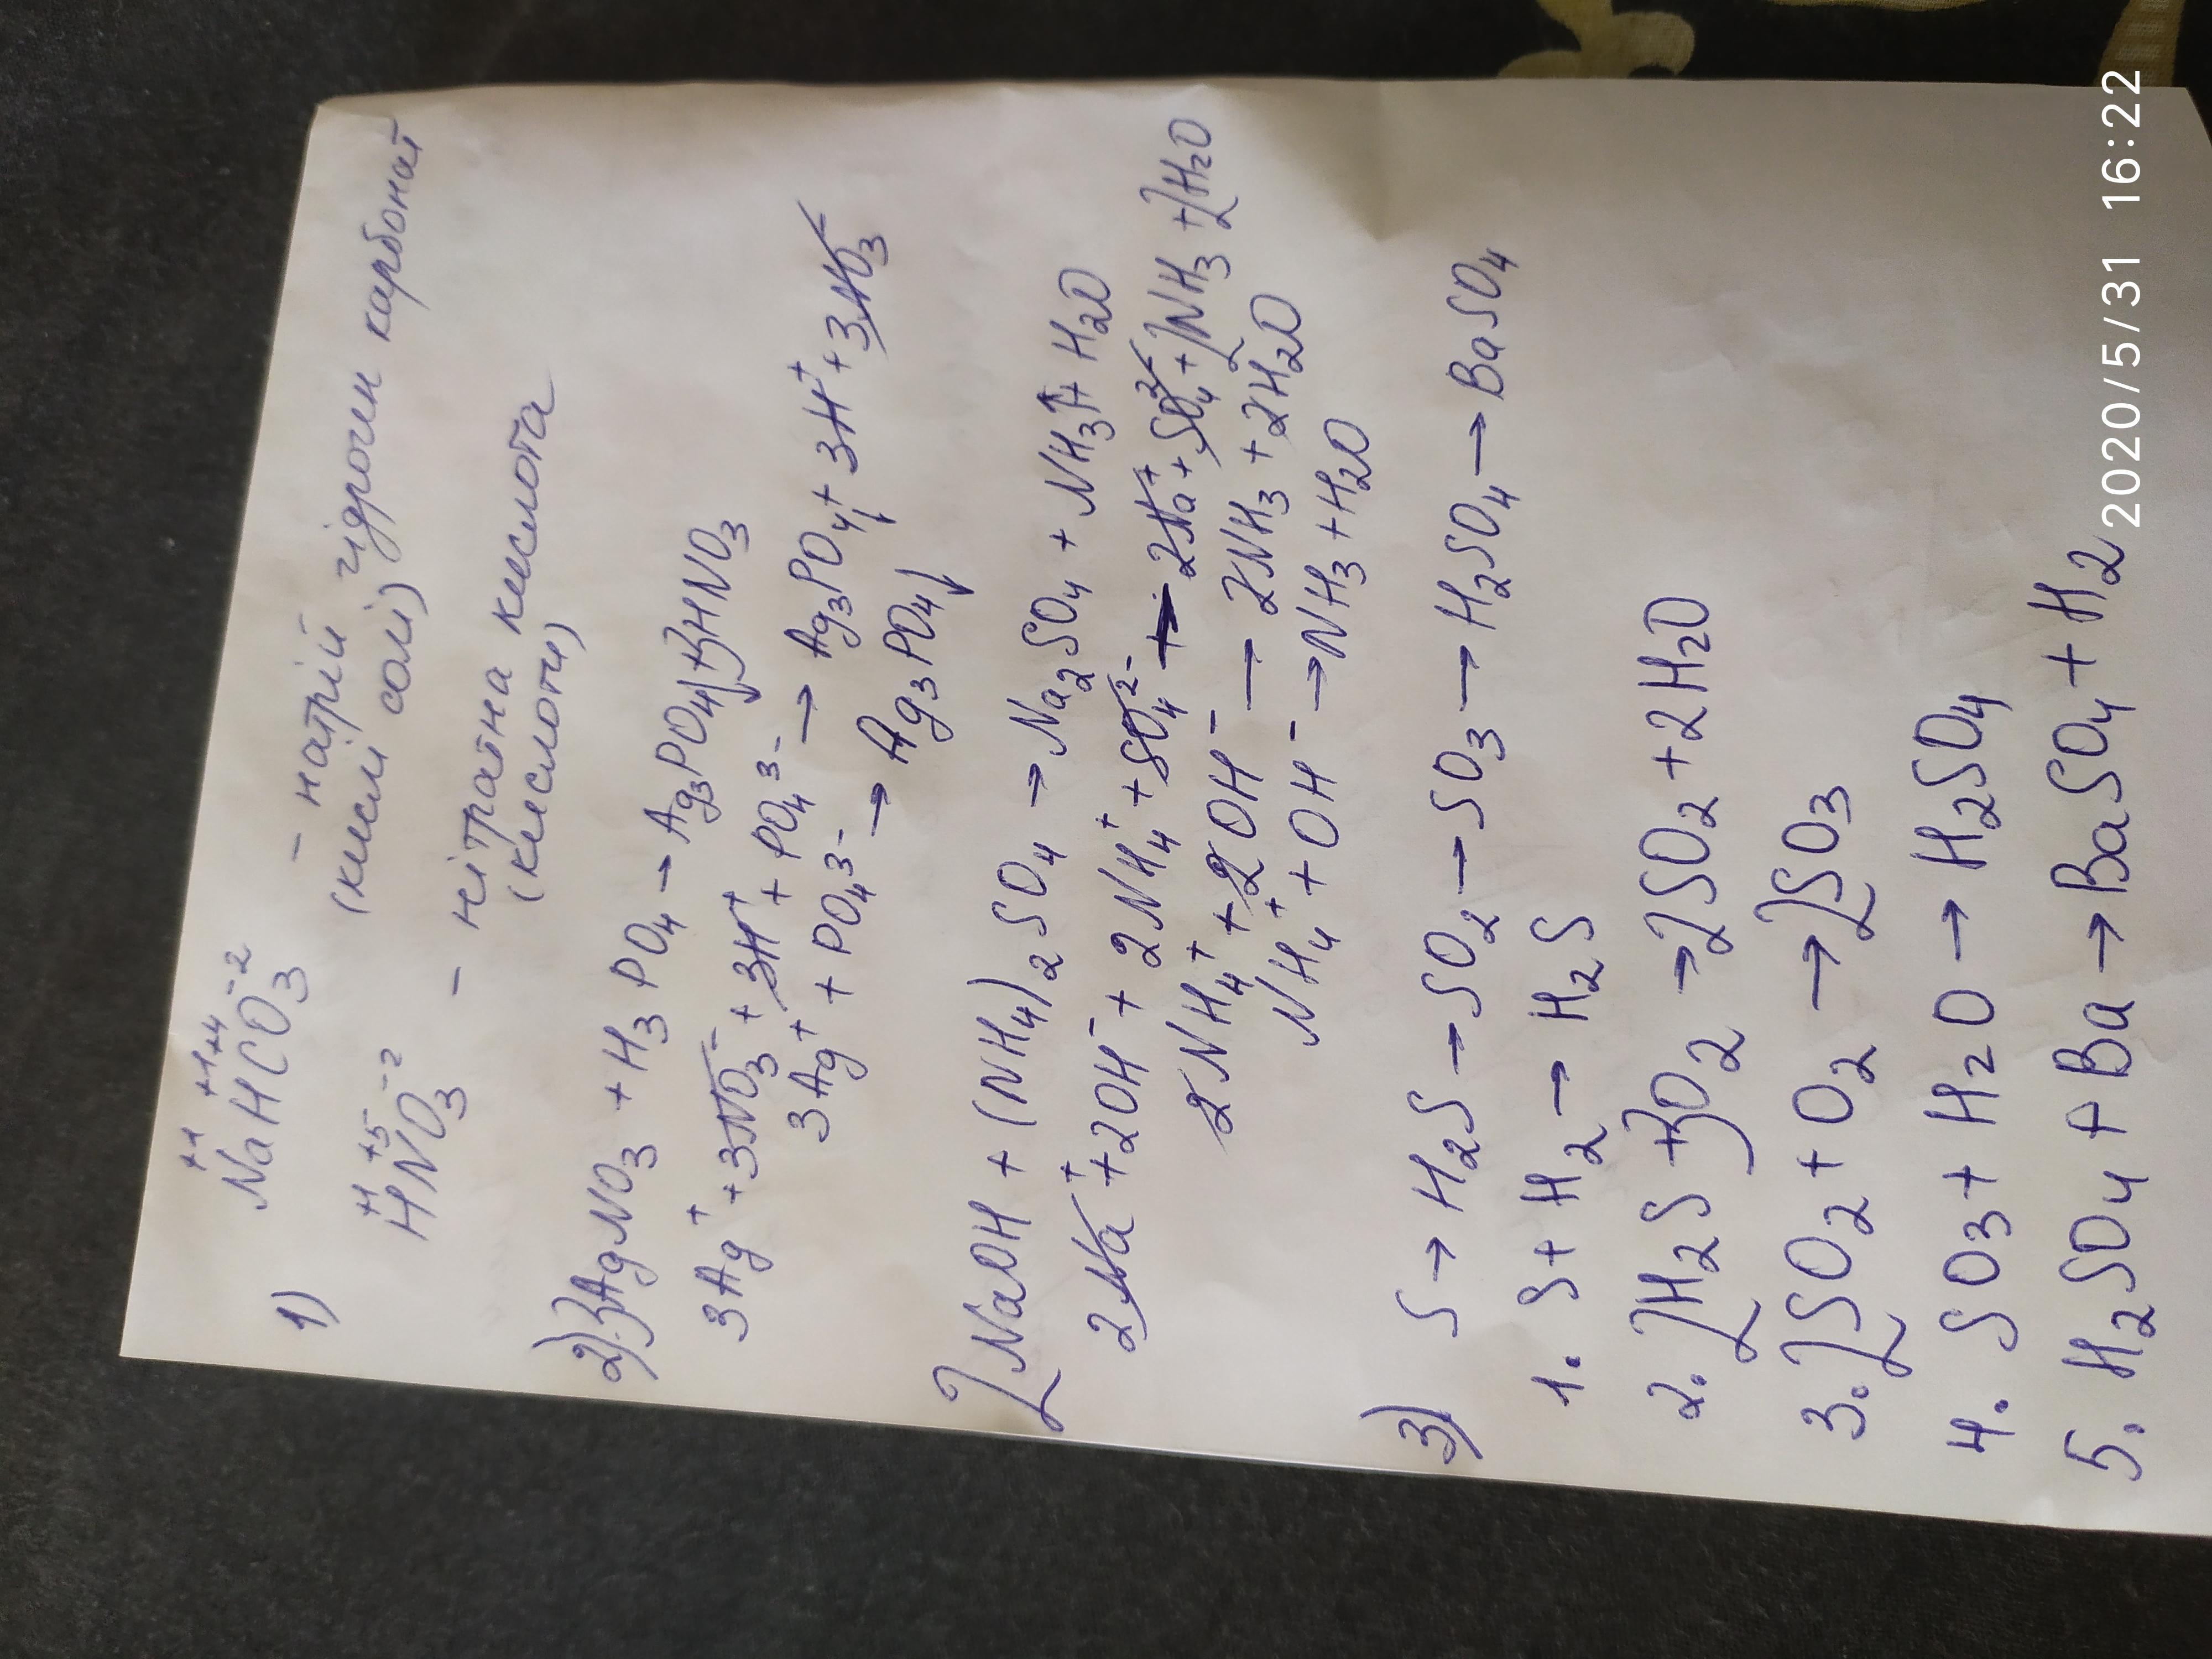 1) +1 +1 +4 -2
NaHCO₃ – натрій гідроген карбонат
(кислі солі)
+1 +5 -2
HNO₃ – нітратна кислота
(кислоти)
2) 3AgNO₃ + H₃PO₄ → Ag₃PO₄↓ + 3HNO₃
3Ag⁺ + 3NO₃⁻ + 3H⁺ + PO₄³⁻ → Ag₃PO₄↓ + 3H⁺ + 3NO₃⁻
3Ag⁺ + PO₄³⁻ → Ag₃PO₄↓
2NaOH + (NH₄)₂SO₄ → Na₂SO₄ + NH₃↑ + H₂O
2Na⁺ + 2OH⁻ + 2NH₄⁺ + SO₄²⁻ → 2Na⁺ + SO₄²⁻ + 2NH₃ + 2H₂O
2NH₄⁺ + 2OH⁻ → 2NH₃ + 2H₂O
NH₄⁺ + OH⁻ → NH₃ + H₂O
3) S → H₂S → SO₂ → SO₃ → H₂SO₄ → BaSO₄
1. S + H₂ → H₂S
2. 2H₂S + 3O₂ → 2SO₂ + 2H₂O
3. 2SO₂ + O₂ → 2SO₃
4. SO₃ + H₂O → H₂SO₄
5. H₂SO₄ + Ba → BaSO₄ + H₂
2020/5/31 16:22